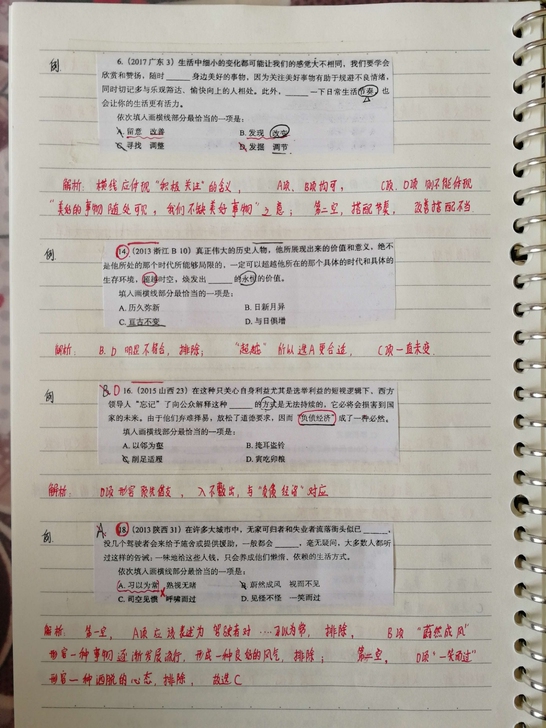 例
6.（2017 广东 3）生活中细小的变化都可能让我们的感觉大不相同，我们要学会
欣赏和赞扬，随时______身边美好的事物，因为关注美好事物有助于规避不良情绪，
同时切记多与乐观豁达、愉快向上的人相处。此外，______一下日常生活节奏，也
会让你的生活更有活力。
依次填入画横线部分最恰当的一项是：
A. 留意 改善 B. 发现 改变
C. 寻找 调整 D. 发掘 调节
解析：横线应体现“积极关注”的含义， A项、B项均可， C项、D项则不能体现
“美好的事物随处可见，我们不缺美好事物”之意； 第二空，搭配节奏， 改善搭配不当.
例
14.（2013 浙江 B 10）真正伟大的历史人物，他所展现出来的价值和意义，绝不
是他所处的那个时代所能够局限的，一定可以超越他所在的那个具体的时代和具体的
生存环境，超越时空，焕发出______的永恒的价值。
填入画横线部分最恰当的一项是：
A. 历久弥新 B. 日新月异
C. 亘古不变 D. 与日俱增
解析： B. D 明显不符合，排除； “超越” 所以选A更合适， C项一直未变.
例
B. D 16.（2015 山西 23）在这种只关心自身利益尤其是选举利益的短视逻辑下，西方
领导人“忘记”了向公众解释这种______的方式是无法持续的，它必将会损害到国
家的未来。由于他们弃难择易，放松了道德要求，因而“负债经济”成了一种必然。
填入画横线部分最恰当的一项是：
A. 以邻为壑 B. 掩耳盗铃
C. 削足适履 D. 寅吃卯粮
解析： D项形容预先借支， 入不敷出，与“负债经济”对应.
例
A. 18.（2013 陕西 31）在许多大城市中，无家可归者和失业者流落街头似已______，
没几个驾驶者会来给予施舍或提供援助，一般都会______，毫无疑问，大多数人都听
过这样的告诫：一味地给这些人钱，只会养成他们懒惰、依赖的生活方式。
依次填入画横线部分最恰当的一项是：
A. 习以为常 熟视无睹 B. 蔚然成风 视而不见
C. 司空见惯 呼啸而过 D. 见怪不怪 一笑而过
解析： 第一空， A项应该表述为 驾驶者对…习以为常， 排除， B项 “蔚然成风”
形容一种事物逐渐发展流行，形成一种良好的风气，排除； 第二空， D项“一笑而过”
形容一种洒脱的心态，排除， 故选C